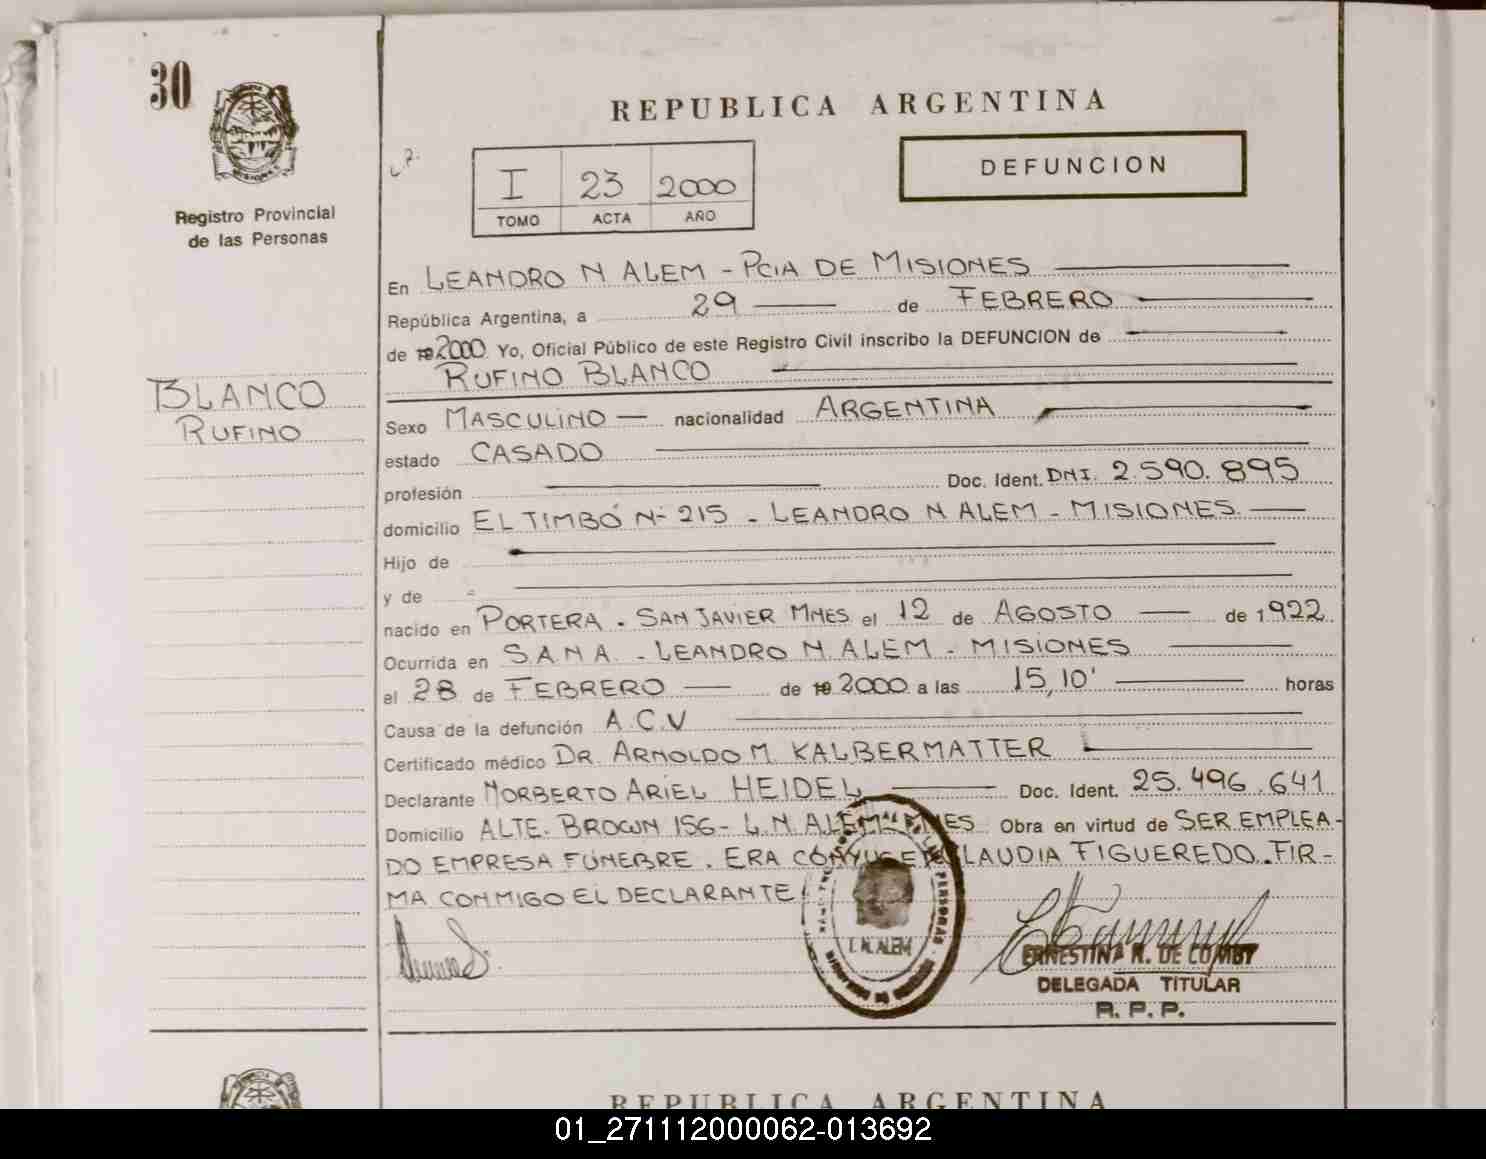 30
REPUBLICA ARGENTINA
DEFUNCION
I 23 2000
TOMO ACTA AÑO
Registro Provincial
de las Personas
BLANCO
RUFINO
En LEANDRO N ALEM - PCIA DE MISIONES
República Argentina, a 29 de FEBRERO
de 19 2000 Yo, Oficial Público de este Registro Civil inscribo la DEFUNCION de
RUFINO BLANCO
Sexo MASCULINO nacionalidad ARGENTINA
estado CASADO
profesión Doc. Ident. DNI. 2.590.895
domicilio EL TIMBÓ Nº 215 - LEANDRO N ALEM - MISIONES
Hijo de
y de
nacido en PORTERA - SAN JAVIER MNES el 12 de AGOSTO de 1922
Ocurrida en SANA - LEANDRO N. ALEM - MISIONES
el 28 de FEBRERO de 19 2000 a las 15,10' horas
Causa de la defunción A.C.V
Certificado médico DR. ARNOLDO M. KALBERMATTER
Declarante NORBERTO ARIEL HEIDEL Doc. Ident. 25.496.641
Domicilio ALTE. BROWN 156 - L.N. ALEM - MNES Obra en virtud de SER EMPLEA-
DO EMPRESA FÚNEBRE. ERA CÓNYUGE CLAUDIA FIGUEREDO. FIR-
MA CONMIGO EL DECLARANTE
PERSONAS
L. N. ALEM
ERNESTINA R. DE COMBY
DELEGADA TITULAR
R. P. P.
REPUBLICA ARGENTINA
01_271112000062-013692